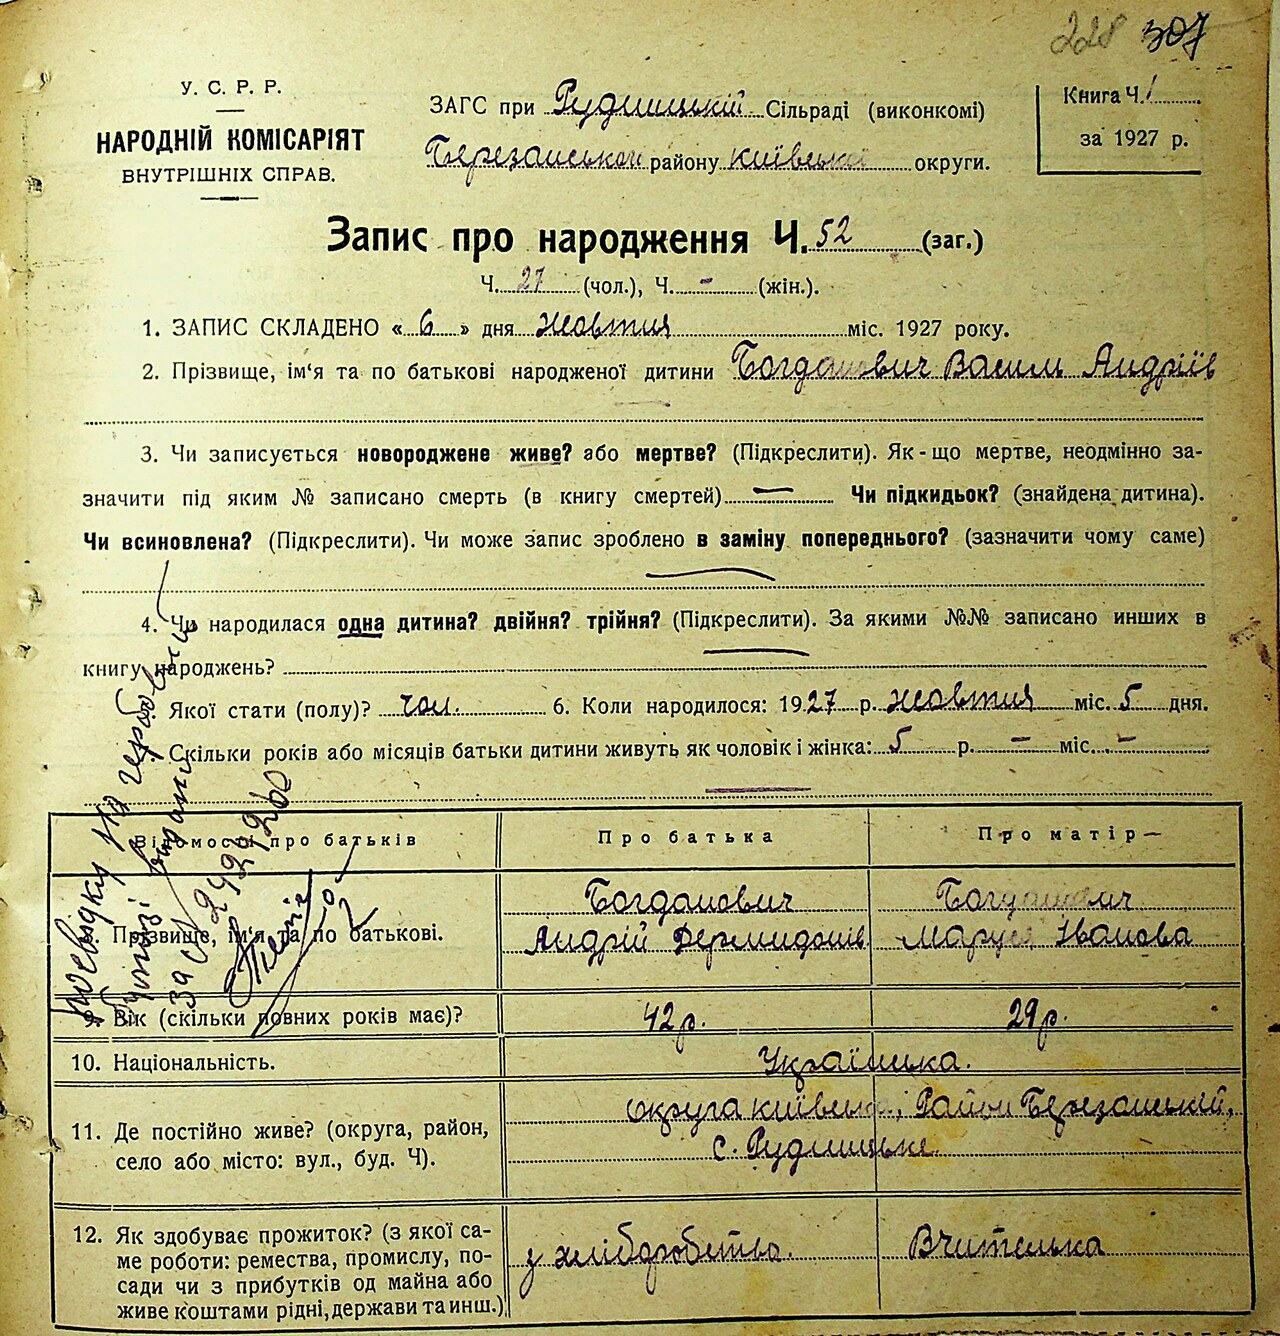 228 307
У. С. Р. Р.
НАРОДНІЙ КОМІСАРІЯТ
ВНУТРІШНІХ СПРАВ.
ЗАГС при Рудницькій Сільраді (виконкомі)
Березанського району Київської округи.
Книга Ч. 1
за 1927 р.
Запис про народження Ч. 52 (заг.)
Ч. 27 (чол.), Ч. - (жін.).
1. ЗАПИС СКЛАДЕНО « 6 » дня жовтня міс. 1927 року.
2. Прізвище, ім'я та по батькові народженої дитини Богданович Василь Андріїв
3. Чи записується новороджене живе? або мертве? (Підкреслити). Як-що мертве, неодмінно за-
значити під яким № записано смерть (в книгу смертей) — Чи підкидьок? (знайдена дитина).
Чи всиновлена? (Підкреслити). Чи може запис зроблено в заміну попереднього? (зазначити чому саме)
4. Чи народилася одна дитина? двійня? трійня? (Підкреслити). За якими №№ записано инших в
книгу народжень?
Якої стати (полу)? чол. 6. Коли народилося: 1927 р. жовтня міс. 5 дня.
Скільки років або місяців батьки дитини живуть як чоловік і жінка: 5 р. - міс. -
Відомості про батьків
Про батька
Про матір
Прізвище, ім'я та по батькові.
Богданович
Андрій Дермидонів
Богданович
Маруся Іванова
9. Вік (скільки повних років має)?
42 р.
29 р.
10. Національність.
Українка.
11. Де постійно живе? (округа, район,
село або місто: вул., буд. Ч).
округа Київська, Район Березанський,
с. Рудницьке
12. Як здобуває прожиток? (з якої са-
ме роботи: ремества, промислу, по-
сади чи з прибутків од майна або
живе коштами рідні, держави та инш.)
з хліборобства.
Вчителька
посвідку на гербовій
видано
за №